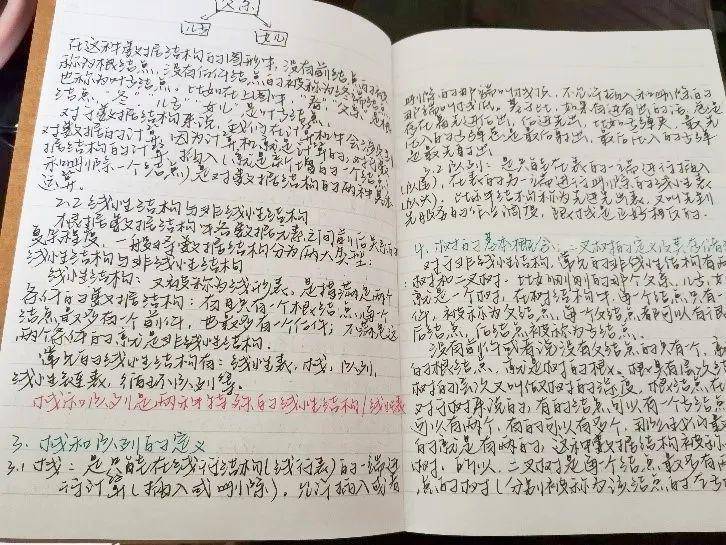 父亲
儿子 女儿
在这种数据结构的图形中，没有前结点的被
称为根结点，没有后件结点的被称为终端结点，
也称为叶子结点。比如在上图中，"春"父亲"是根
结点，"冬"儿子""女儿"是叶子结点。
对于数据结构来说，我们在计算机中会涉及到
对数据的计算，因为计算机就是计算的，对于数
据结构的计算，插入（就是新增的一个结点）
和删除一个结点）是对数据结构的两种基本
运算。
2.2 线性结构与非线性结构
根据数据结构中各数据元素之间前后关系的
复杂程度，一般将数据结构分为两大类型：
线性结构与非线性结构
线性结构：又被称为线形表，是指满足两个
条件的数据结构：有且只有一个根结点，每个
结点最多有一个前件，也最多有一个后件；不满足这
两个条件的就是非线性结构。
常见的线性结构有：线性表，栈，队列，
线性链表，循环队列等。
栈和队列是两种特殊的线性结构/线性表
3. 栈和队列的定义
3.1 栈：是只能在线行结构（线行表）的一端进
行计算（插入或删除），允许插入或者
删除的那端叫栈顶，不允许插入和删除的
那端叫栈底。基于此，如果有进有出的话，总
存在着先进后出，后进先出，比如子弹夹，最先
压入的子弹总是最后射出，最后压入的子弹
是最先射出
3.2 队列：是只能在表的一端进行插入
（队尾），在表的另一端进行删除的线性表
（队头），此种结构称为先进先出表，又叫先到
先服务的作业调度，跟栈是正好相反的。
4. 树的基本概念：二叉树的定义及其存储结
对于非线性结构，常见的非线性结构有两
树和二叉树。比如刚刚的那个父亲，儿子，女
就是一个树，在树结构中，每一个结点只有一
件，被称为父结点，每个结点都可以有很
后结点，后结点被称为子结点。
没有前件或者说没有父结点的只有一个，
的根结点，就是树的根。
树的层次又叫做树的深度，根结点在
对于树来说的，有的结点可以有一个子结点
可以有两个，有的可以有多个，
的就是有两的，这种数据结构被称
树。所以，二叉树是每个结点最多有两
点的树（分别被称为该结点的左子